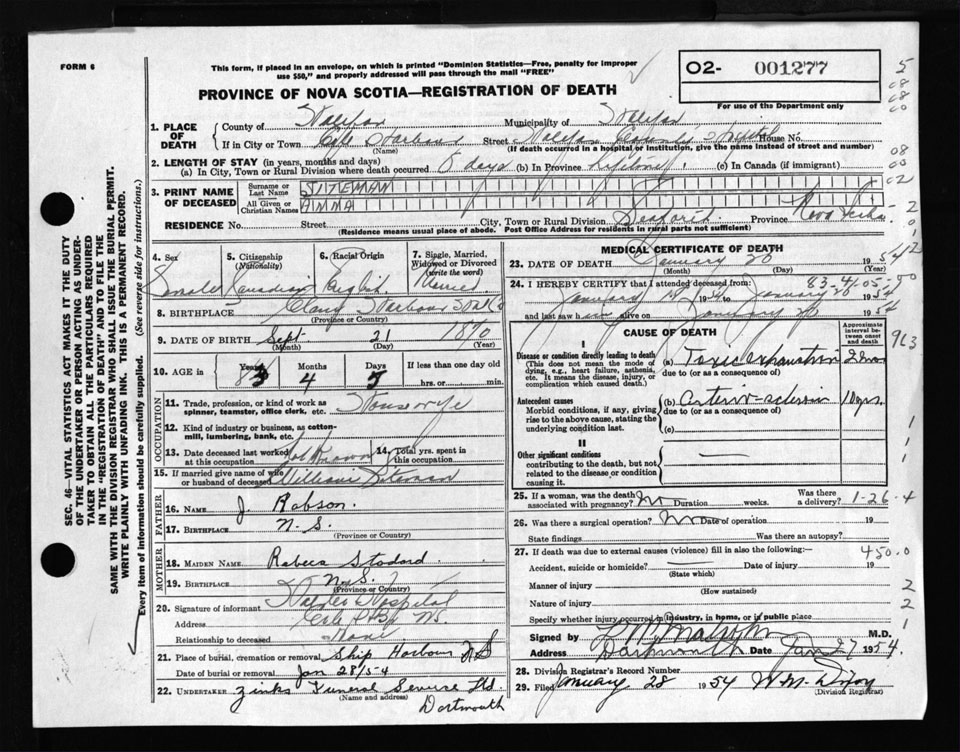 FORM 6
This form, if placed in an envelope, on which is printed "Dominion Statistics—Free, penalty for improper
use $50," and properly addressed will pass through the mail "FREE"
PROVINCE OF NOVA SCOTIA—REGISTRATION OF DEATH
O2- 001277
For use of the Department only
1. PLACE OF DEATH
County of Halifax Municipality of Halifax
If in City or Town Cole Harbour Street Halifax County Hospital House No.
(Name) (If death occurred in a hospital or institution, give the name instead of street and number)
2. LENGTH OF STAY (in years, months and days)
(a) In City, Town or Rural Division where death occurred days (b) In Province Lifetime (c) In Canada (if immigrant)
3. PRINT NAME OF DECEASED
Surname or Last Name SITEMAN
All Given or Christian Names ANNA
RESIDENCE No. Street City, Town or Rural Division Seaforth Province Nova Scotia
(Residence means usual place of abode. Post Office Address for residents in rural parts not sufficient)
4. Sex Female
5. Citizenship (Nationality) Canadian
6. Racial Origin English
7. Single, Married, Widowed or Divorced (write the word) Married
8. BIRTHPLACE Clam Harbour
(Province or Country)
9. DATE OF BIRTH Sept 21 1870
(Month) (Day) (Year)
10. AGE in Years 83 Months 4 Days 5 If less than one day
hrs. or min.
OCCUPATION
11. Trade, profession, or kind of work as spinner, teamster, office clerk, etc. Housewife
12. Kind of industry or business, as cotton-mill, lumbering, bank, etc.
13. Date deceased last worked at this occupation Not Known
14. Total yrs. spent in this occupation
15. If married give name of wife or husband of deceased William Siteman
FATHER
16. NAME J. Robson
17. BIRTHPLACE N. S.
(Province or Country)
MOTHER
18. MAIDEN NAME Stodard
19. BIRTHPLACE N.S.
(Province or Country)
20. Signature of informant Hospital
Address
Relationship to deceased None
21. Place of burial, cremation or removal Ship Harbour N S
Date of burial or removal Jan 28/54
22. UNDERTAKER Zinks Funeral Service Ltd.
(Name and address)
Dartmouth
MEDICAL CERTIFICATE OF DEATH
23. DATE OF DEATH January 26 1954
(Month) (Day) (Year)
24. I HEREBY CERTIFY that I attended deceased from:
83-4
January to January 26 1954
and last saw h alive on January 26 1954
CAUSE OF DEATH
Approximate interval between onset and death
I
Disease or condition directly leading to death
(This does not mean the mode of dying, e.g., heart failure, asthenia, etc. It means the disease, injury, or complication which caused death.)
(a) Toxic exhaustion
due to (or as a consequence of)
Antecedent causes
Morbid conditions, if any, giving rise to the above cause, stating the underlying condition last.
(b) Arterio-sclerosis 10 yrs.
due to (or as a consequence of)
(c)
II
Other significant conditions
contributing to the death, but not related to the disease or condition causing it.
25. If a woman, was the death associated with pregnancy? No Duration weeks. Was there a delivery?
1-26-4
26. Was there a surgical operation? No Date of operation 19
State findings Was there an autopsy?
27. If death was due to external causes (violence) fill in also the following:—
450.0
Accident, suicide or homicide? Date of injury 19
(State which)
Manner of injury
(How sustained)
Nature of injury
Specify whether injury occurred in industry, in home, or in public place
Signed by M.D.
Address Dartmouth Date Jan 27 1954.
28. Division Registrar's Record Number
29. Filed January 28 1954 W. M. Dixon
(Division Registrar)
SEC. 46—VITAL STATISTICS ACT MAKES IT THE DUTY
OF THE UNDERTAKER OR PERSON ACTING AS UNDER-
TAKER TO OBTAIN ALL THE PARTICULARS REQUIRED
IN THE "REGISTRATION OF DEATH" AND TO FILE THE
SAME WITH THE DIVISION REGISTRAR WHO SHALL ISSUE THE BURIAL PERMIT.
WRITE PLAINLY WITH UNFADING INK. THIS IS A PERMANENT RECORD.
Every item of information should be carefully supplied. (See reverse side for instructions.)